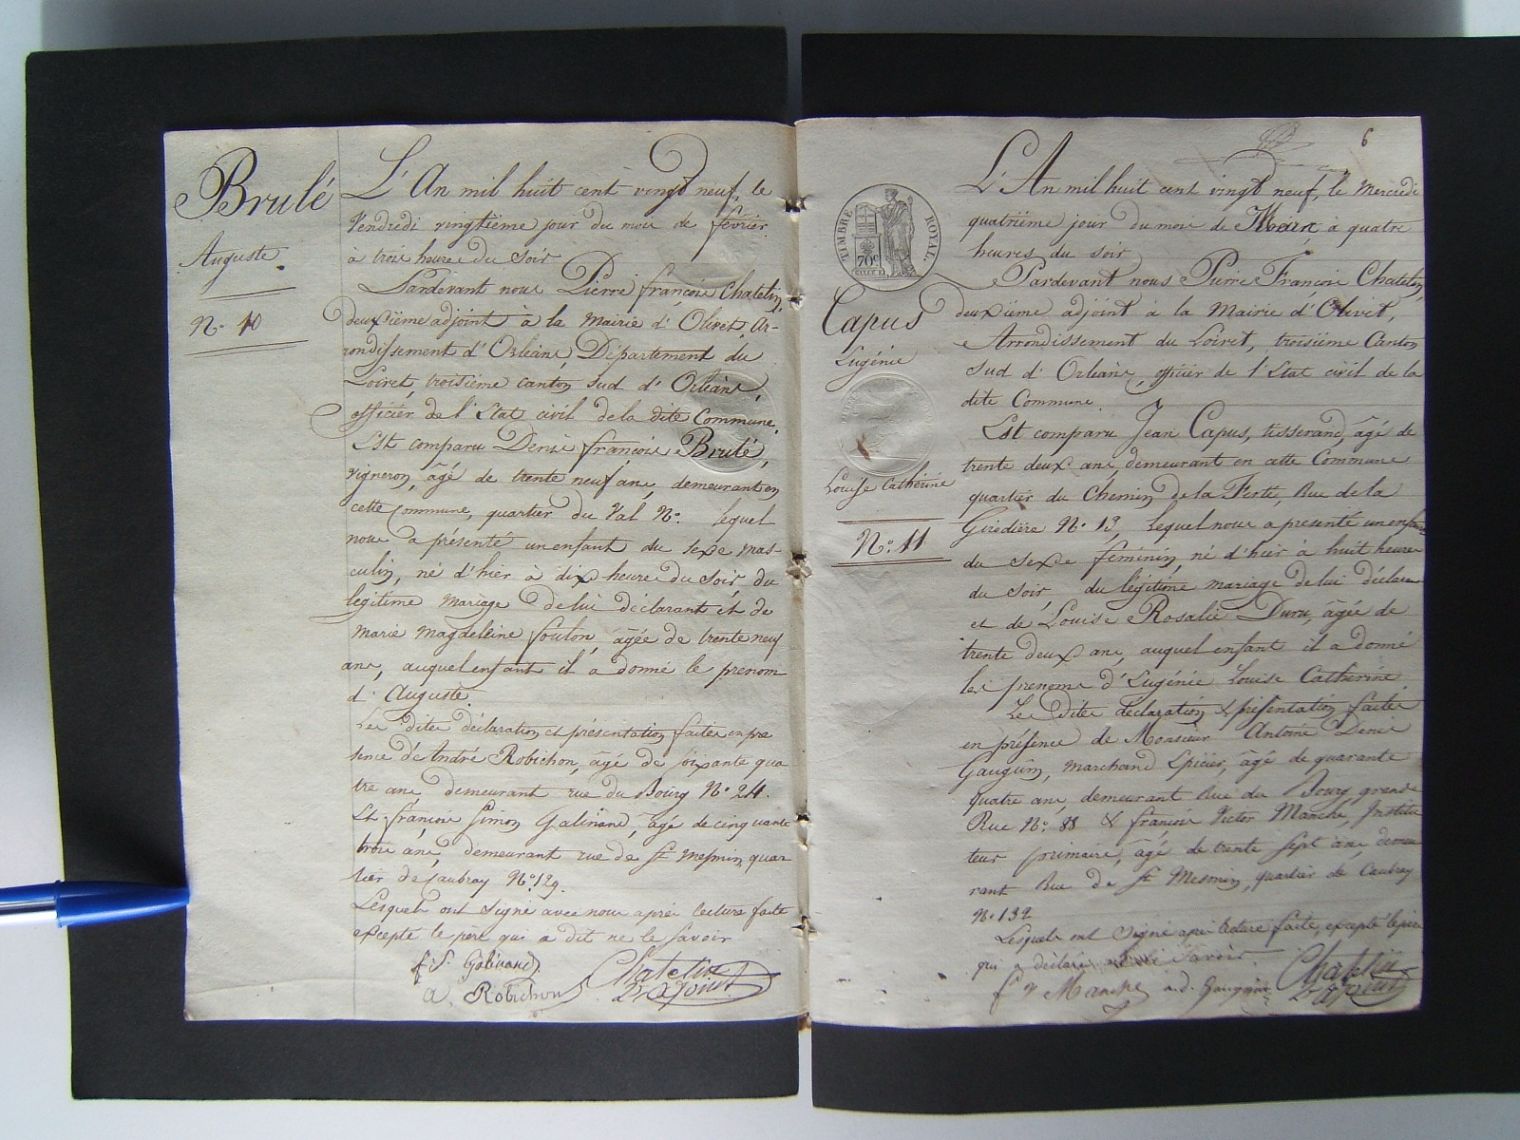 Brulé
Auguste
N° 10
L'An mil huit cent vingt neuf, le
Vendredi vingtième jour du mois de février
à trois heures du Soir
Pardevant nous Pierre françois Chatelin,
deuxième adjoint à la Mairie d'Olivet, Ar-
rondissement d'Orléans, Département du
Loiret, troisième canton sud d'Orléans,
officier de l'Etat civil de la dite Commune.
Est comparu Denis françois Brulé,
vigneron, âgé de trente neuf ans, demeurant en
cette Commune, quartier du Val N° lequel
nous a présenté un enfant du sexe mas-
culin, né d'hier à dix heures du soir, du
légitime mariage de lui déclarant et de
Marie Magdeleine foulon, âgée de trente neuf
ans, auquel enfant il a donné le prenom
d'Auguste.
Les dites déclaration et présentation faites en pré
sence d'André Robichon, âgé de soixante qua
tre ans demeurant rue du Bourg N° 24.
Et françois Simon Galinand, âgé de cinquante
trois ans, demeurant rue de St Mesmin, quar
tier de Caubray N° 129.
Lesquels ont signé avec nous après lecture faite
excepté le père qui a dit ne le savoir
f. S. Galinand
A. Robichon
Chatelin
2e adjoint
6
TIMBRE ROYAL
70c
Capus
Eugénie
Louise Catherine
N° 11
L'An mil huit cent vingt neuf, le Mercredi
quatrième jour du mois de Mars, à quatre
heures du soir
Pardevant nous Pierre François Chatelin,
deuxième adjoint à la Mairie d'Olivet,
Arrondissement du Loiret, troisième Canton
Sud d'Orléans, officier de l'Etat civil de la
dite Commune.
Est comparu Jean Capus, tisserand, âgé de
trente deux ans, demeurant en cette Commune
quartier du Chemin de la Ferté, Rue de la
N° 13, lequel nous a présenté un enfant
du sexe féminin, né d'hier à huit heures
du soir, du légitime mariage de lui déclarant
et de Louise Rosalie Duru, âgée de
trente deux ans, auquel enfant il a donné
les prenoms d'Eugénie Louise Catherine
Les dites déclaration & présentation faites
en présence de Monsieur Antoine Denis
Gauguin, marchand Epicier, âgé de quarante
quatre ans, demeurant Rue du Bourg grande
Rue N° 88 & françois Victor Manche, Institu
teur primaire, âgé de trente sept ans, demeu
rant Rue de St Mesmin, quartier de Caubray
N° 132
Lesquels ont signé après lecture faite, excepté le père
qui a déclaré ne le savoir.
f V Manche a. d. Gauguin
Chatelin
2e adjoint